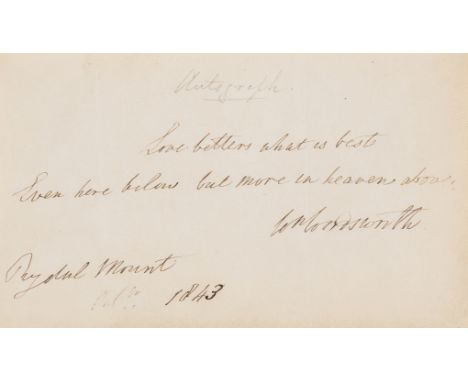 Autograph.
Love betters what is best
Even here below but more in heaven above.
Wm Wordsworth
Rydal Mount
1843